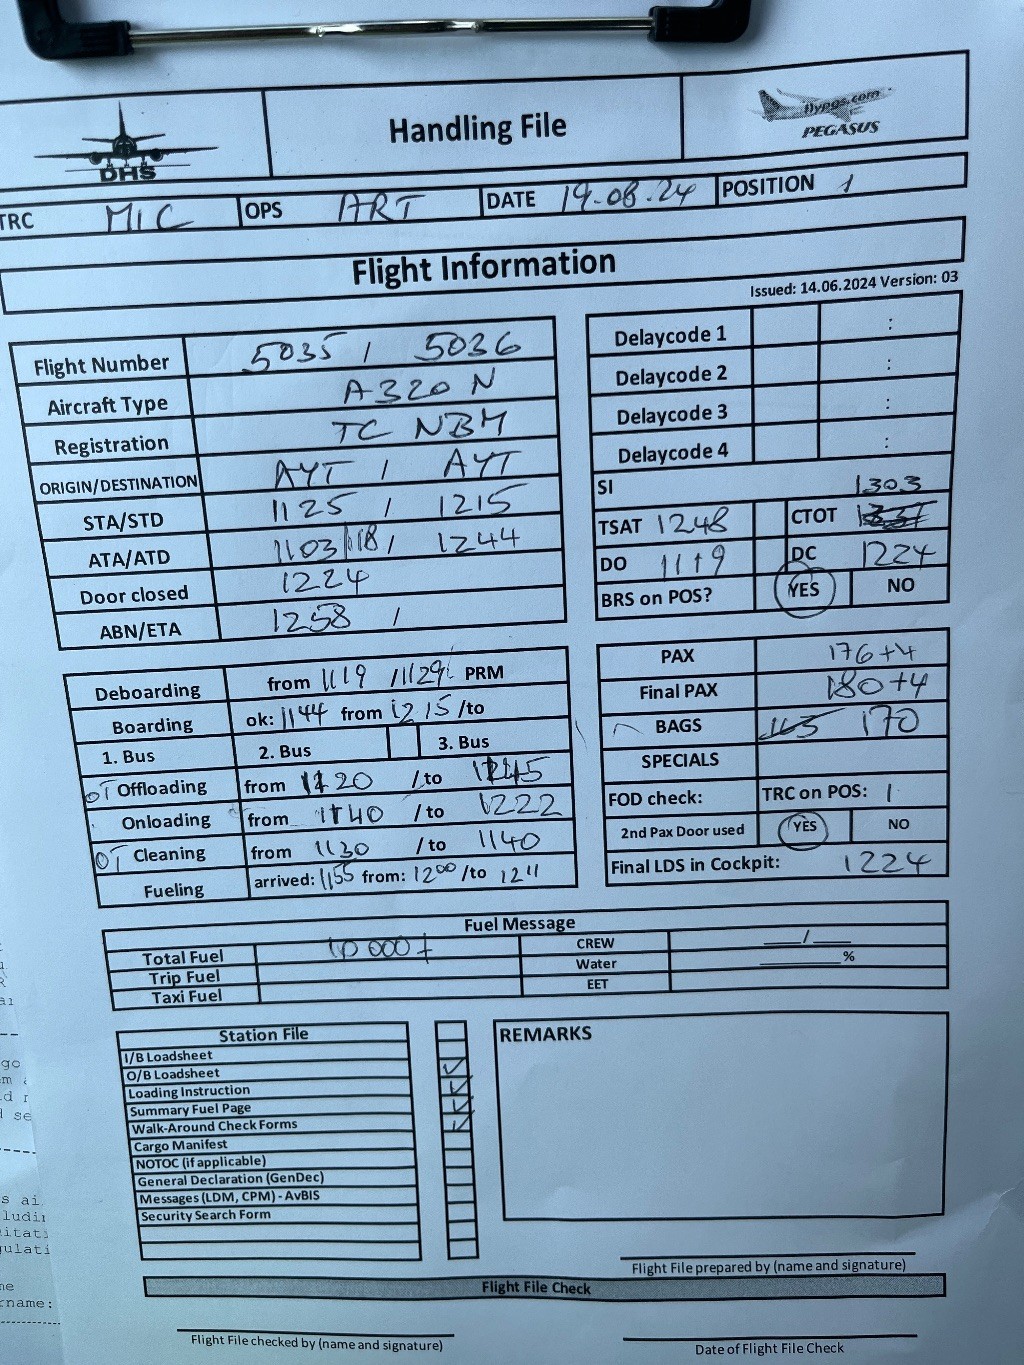 Handling File
DHS
flypgs.com
PEGASUS
TRC MIC OPS ART DATE 19.08.24 POSITION 1
Flight Information
Issued: 14.06.2024 Version: 03
Flight Number 5035 / 5036
Aircraft Type A320 N
Registration TC NBM
ORIGIN/DESTINATION AYT / AYT
STA/STD 1125 / 1215
ATA/ATD 1103/118 / 1244
Door closed 1224
ABN/ETA 1258 /
Delaycode 1 :
Delaycode 2 :
Delaycode 3 :
Delaycode 4 :
SI 1303
TSAT 1248 CTOT
DO 1119 DC 1224
BRS on POS? YES NO
Deboarding from 1119 /1129 PRM
Boarding ok: 1144 from 1215 /to
1. Bus 2. Bus 3. Bus
OT Offloading from 1120 /to
Onloading from 1140 /to 1222
OT Cleaning from 1130 /to 1140
Fueling arrived: 1155 from: 1200 /to 1211
PAX 176+4
Final PAX 180+4
BAGS 165 170
SPECIALS
FOD check: TRC on POS: 1
2nd Pax Door used YES NO
Final LDS in Cockpit: 1224
Fuel Message
Total Fuel 10 000 CREW __/__
Trip Fuel Water ______%
Taxi Fuel EET
Station File
I/B Loadsheet
O/B Loadsheet ✓
Loading Instruction ✓
Summary Fuel Page ✓
Walk-Around Check Forms ✓
Cargo Manifest
NOTOC (if applicable)
General Declaration (GenDec)
Messages (LDM, CPM) - AvBIS
Security Search Form
REMARKS
Flight File prepared by (name and signature)
Flight File Check
Flight File checked by (name and signature)
Date of Flight File Check